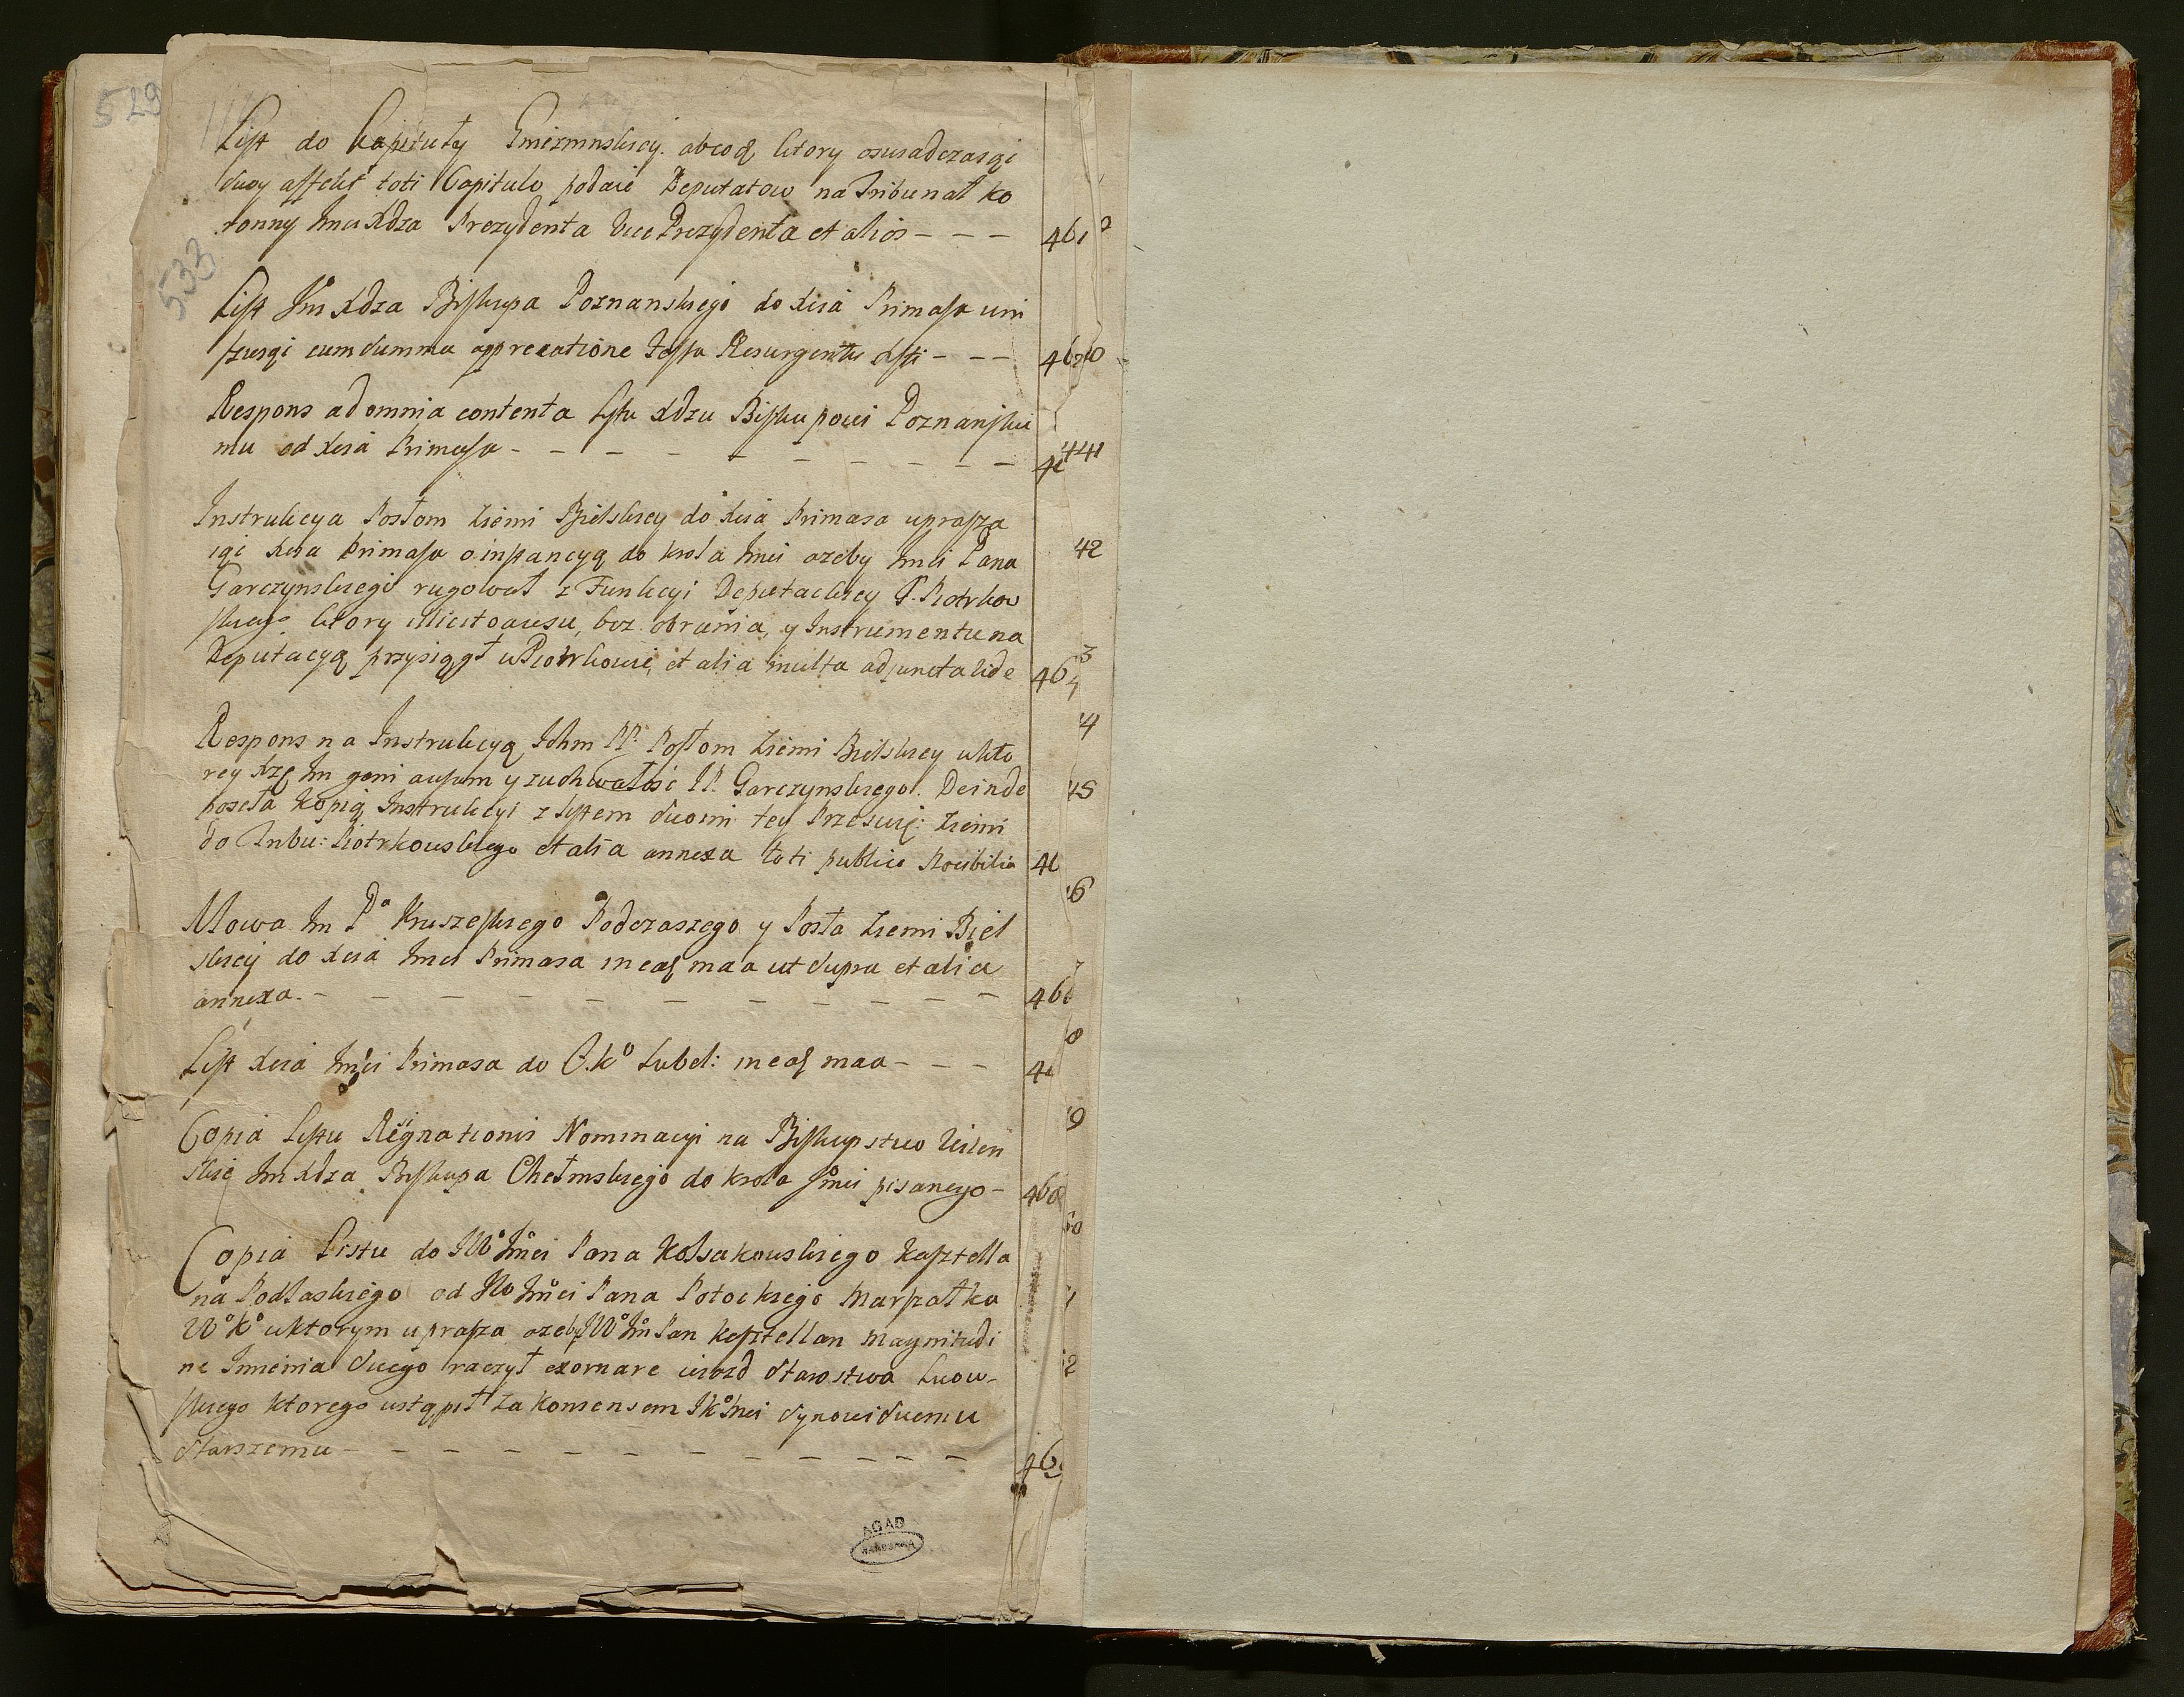 529
533
List do Kapituły Gniezninskiey. abcoą ktory oswiadczaiąc
swoy affekt toti Capitulo podaie Deputatow na Tribunał ko
ronny Jmci Xdza Prezydenta Vice Prezydenta et alios - - - 461
List Jm Xdza Biskupa Poznanskiego do Xcia Primasa win
szuiąc cum summa apprecatione Festa Resurgentis Xsti - - - 46
Respons ad omnia contenta Listu Xdzu Biskupowi Poznanskie
mu od Xcia Primasa - - - - - - - - 441
Instrukcya Posłom Ziemi Bielskiey do Xcia Primasa uprasza
iąc Xcia Primasa o instancyą do Krola Jmci ażeby Jmci Pana 42
Garczynskiego rugował z Funkcyi Deputackiey T. Piotrkow
skiego ktory illicito ausu, bez obrania, y Instrumentu na
Deputacyą przysiągł w Piotrkowie, et alia multa adjuncta vide 46
Respons na Instrukcyą Ichm PP. Posłom Ziemi Bielskiey w kto
rey Xżę Jm gani ausum y zuchwałość P. Garczynskiego. Deinde 45
poseła Kopią Instrukcyi z Listem swoim tey Przeswię: Ziemi
do Trybu: Piotrkowskiego et alia annexa toti publico
Mowa Jm Pa Kruszewskiego Podczaszego y Posła Ziemi Biel
skiey do Xcia Jmci Primasa in eas maa ut supra et alia
annexa. - - - - - - - - - - 46
List Xcia Jmci Primasa do T. Ko Lubel: in eas maa - - -
Copia Listu Resignationis Nominacyi na Biskupstwo Wilen
skie Jm Xdza Biskupa Chełmskiego do Krola Jmci pisanego - 468
Copia Listu do JWo Jmci Pana Kossakowskiego Kasztella
na Podlaskiego od JWo Jmci Pana Potockiego Marszałka
Wo Ko w ktorym uprasza ażeby JWo Jm Pan Kasztellan magnitudi
ne Imienia swego raczył exornare wiazd Starostwa Lwow-
skiego ktorego ustąpił za konsensem JKo Mci synowi swemu
starszemu - - - - - - - - - - 46
AGAD
WARSZAWA